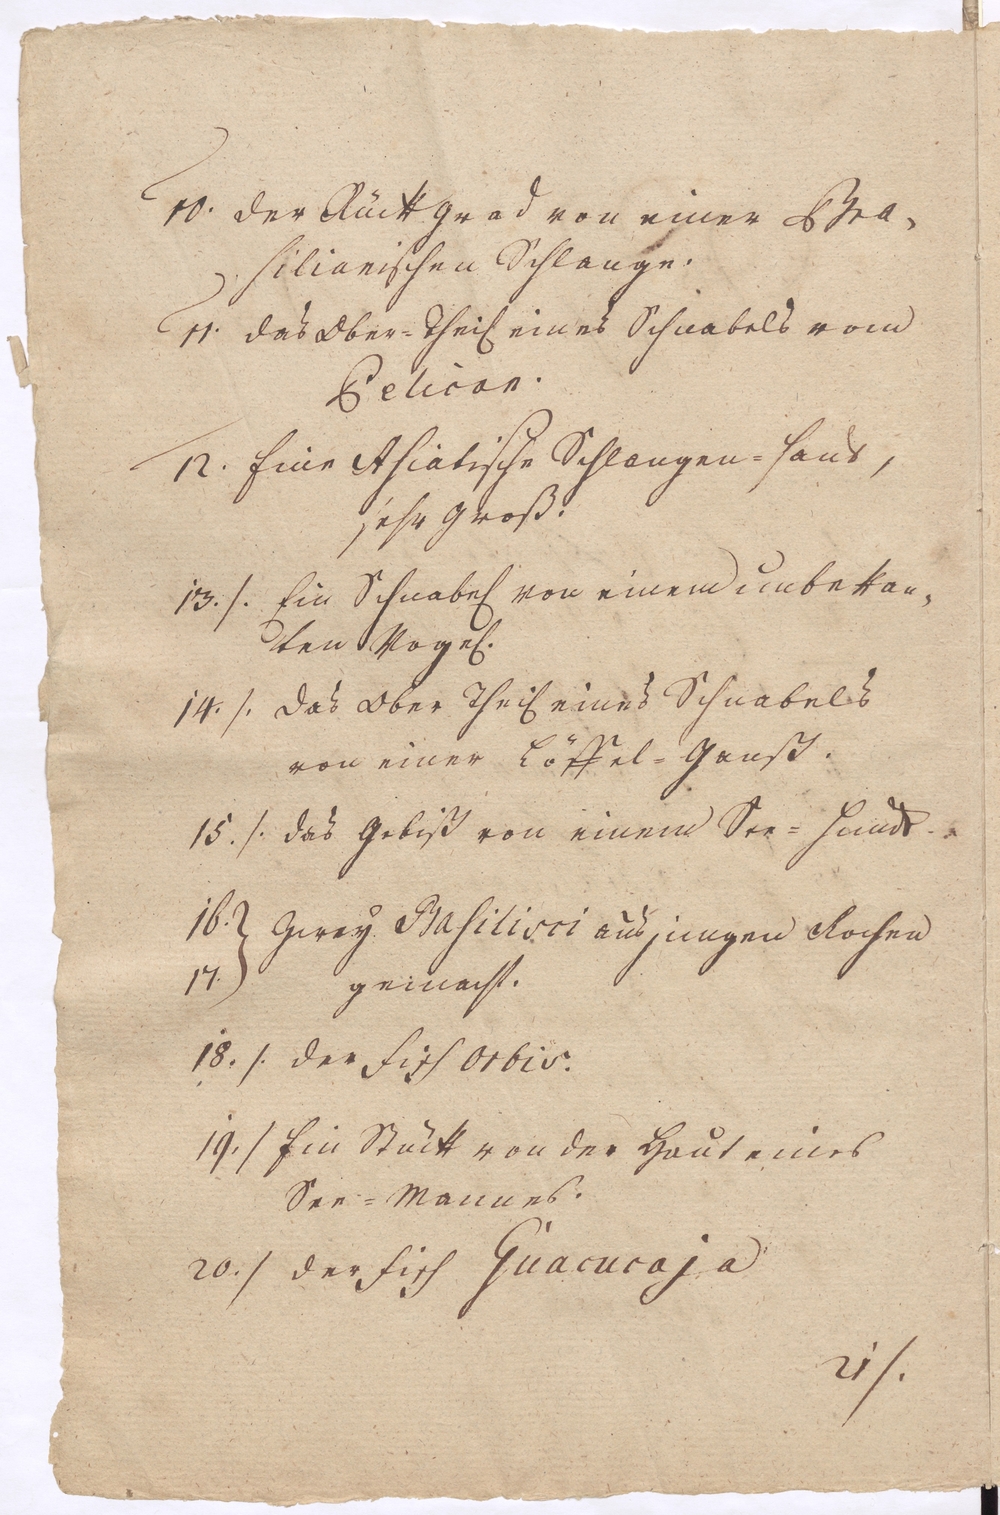 10. der Rückgrad von einer Bra,
silianischen Schlange.
11. das Ober=Theil eines Schnabels vom
Pelican.
12. Eine Asiatische Schlangen=Haut,
sehr groß.
13./. Ein Schnabel von einem unbekan,
ten Vogel.
14./. das Ober Theil eines Schnabels
von einer Löffel=Ganß.
15./. das Gebiß von einem See=Hund.
16. Zwey Basilisci aus jungen Rochen
17. gemacht.
18./. der Fisch Orbis.
19./ Ein Stück von der Haut eines
See=Mannes.
20./ der Fisch Guacucaja
21/.